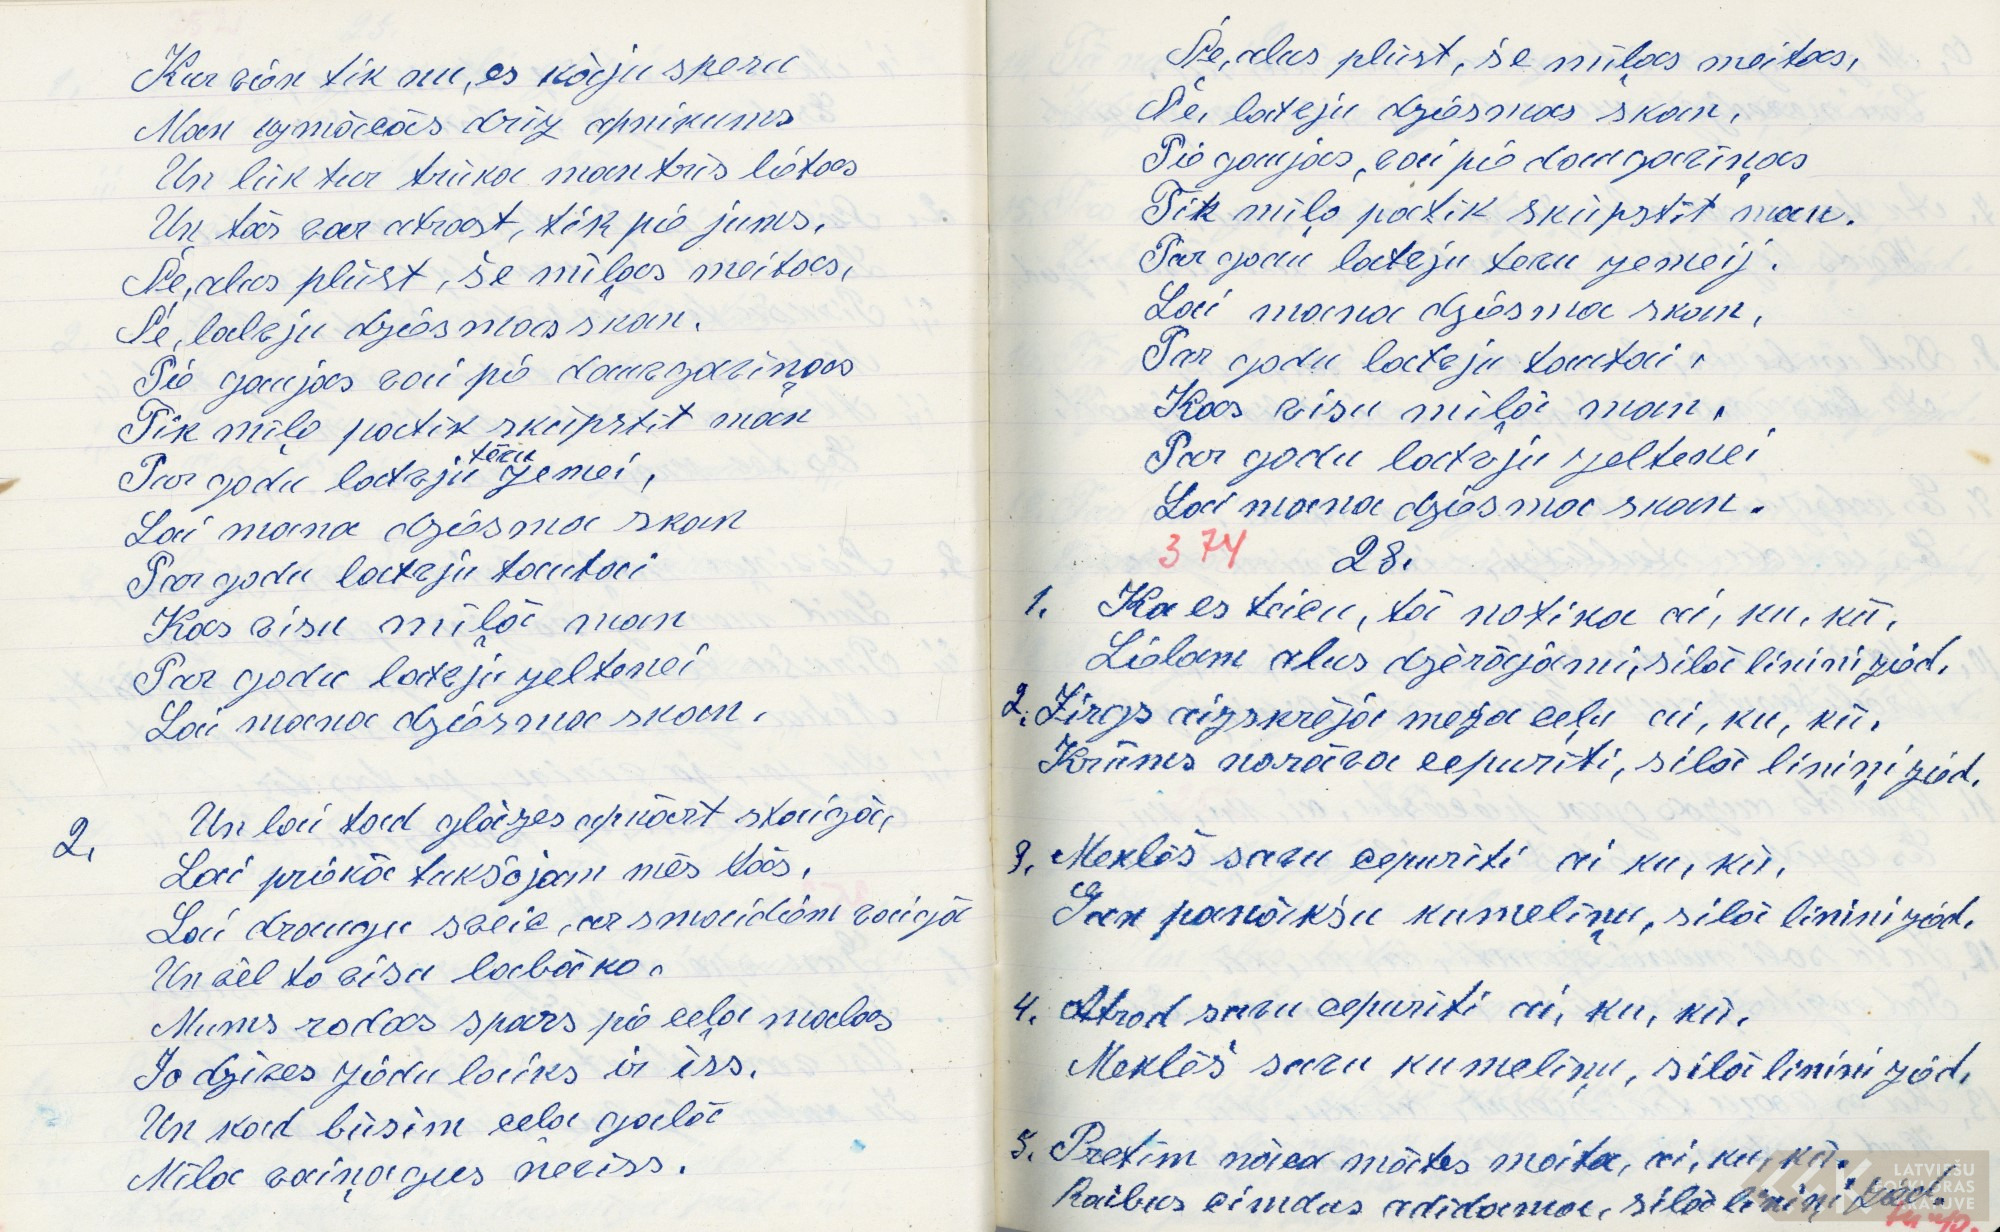 Kur vien tik nu, es kāju speru
Man uzmācās drīz apnikums
Un lūk tur trūka man trīs lietas
Un tās var atrast, tik pie jums.
Še, alus plūst, še mīļas meitas,
Še, latvju dziesmas skan.
Pie gaujas vai pie daugaviņas
Tik mīļo patīk skūpstīt man
Par godu latvju tēvu zemei,
Lai mana dziesma skan
Par godu latvju tautai
Kas visu mīļā man
Par godu latvju zeltenei
Lai mana dziesma skan.
2. Un lai tad glāzes apkārt staigā,
Lai priekā tukšojam mēs tās,
Lai draugu sveic, ar smaidiem vaigā
Un vēl to visu labāko.
Mums rodas spars pie ceļa malas
Jo dzīves ziedu laiks ir īss.
Un kad būsim ceļa galā
Mīla vaiņagus nevīss.
Še, alus plūst, še mīļas meitas,
Še, latvju dziesmas skan,
Pie gaujas, vai pie daugaviņas
Tik mīļo patīk skūpstīt man.
Par godu latvju tēvu zemeij.
Lai mana dziesma skan,
Par godu latvju tautai,
Kas visu mīļā man,
Par godu latvju zeltenei
Lai mana dziesma skan.
374 28.
1. Ka es teicu, tā notika ai, ku, kū,
Lielam alus dzērājami, silā linini zied.
2. Zirgs aizskrēja meža ceļu ai, ku, kū,
Krūms norāva cepurīti, silā liniņi zied.
3. Meklēš savu cepurīti ai ku, kū,
Gan panākšu kumeliņu, silā linini zied.
4. Atrod savu cepurīti ai, ku, kū,
Meklēš savu kumeliņu, silā linini zied,
5. Pretim nāca mātes meita, ai, ku, kū.
Raibus cimdus adīdama, silā liniņi zied.
LATVIEŠU
FOLKLORAS
KRĀTUVE